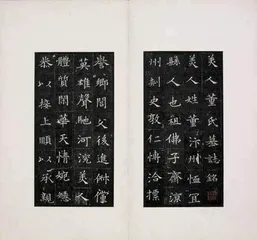 美人董氏墓誌銘
美人姓董汴州恤宜
縣人也祖佛子齊涼
州刺史敦仁博洽標
譽鄉閭父後進俶儻
英雄聲馳河兗美人
體質閑華天情婉嫕
恭以接上順以承親